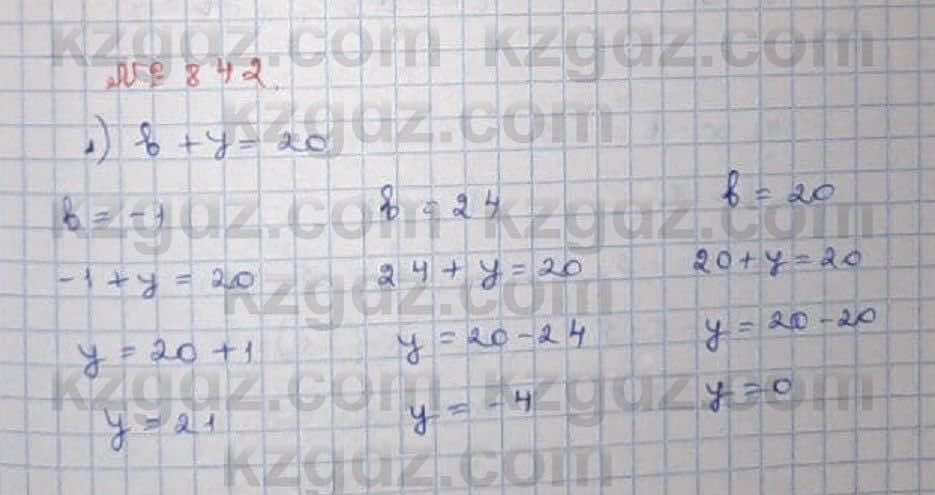 № 842.
1) b + y = 20
b = -1
-1 + y = 20
y = 20 + 1
y = 21
b = 24
24 + y = 20
y = 20 - 24
y = -4
b = 20
20 + y = 20
y = 20 - 20
y = 0
kzgdz.com kzgdz.com
kzgdz.com
kzgdz.com kzgdz.com
kzgdz.com
kzgdz.com kzgdz.com
kzgdz.com